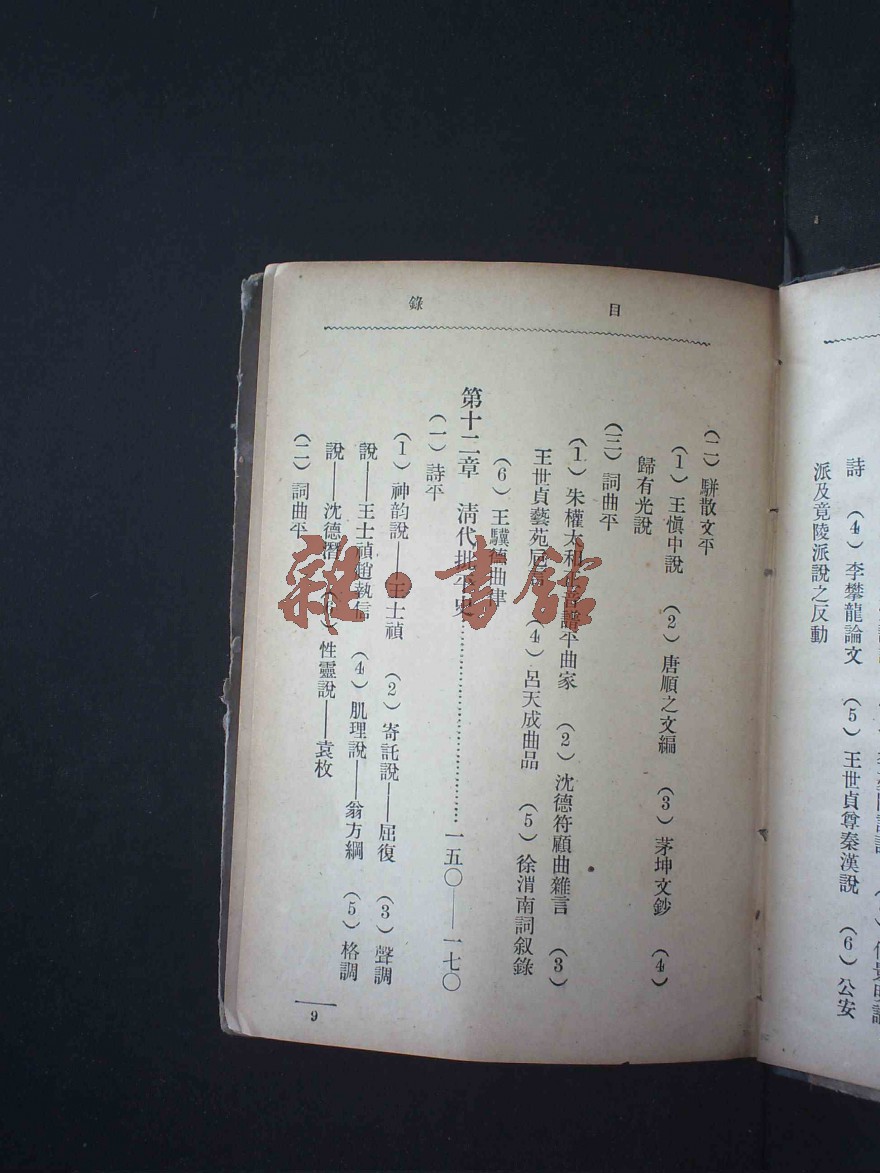 詩 (4) 李攀龍論文 (5) 王世貞尊秦漢說 (6) 公安
派及竟陵派說之反動
目錄
(二) 駢散文平
(1) 王慎中說 (2) 唐順之文編 (3) 茅坤文鈔 (4)
歸有光說
(三) 詞曲平
(1) 朱權太和正音譜平曲家 (2) 沈德符顧曲雜言 (3)
王世貞藝苑巵言 (4) 呂天成曲品 (5) 徐渭南詞叙錄
(6) 王驥德曲律
第十二章 淸代批平史……一五〇——一七〇
(一) 詩平
(1) 神韵說——王士禎 (2) 寄託說——屈復 (3) 聲調
說——王士禎趙執信 (4) 肌理說——翁方綱 (5) 格調
說——沈德潛 性靈說——袁枚
(二) 詞曲平
9
雜·書館